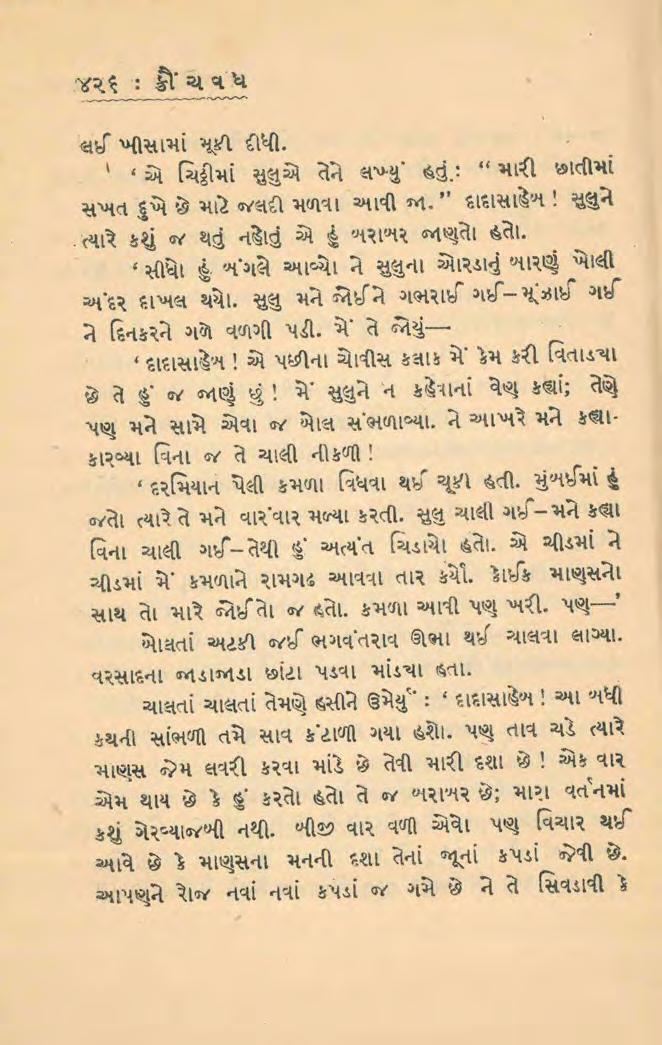 ૪૨૬ : ક્રૌંચવધ
લઈ ખીસામાં મૂકી દીધી.
‘ એ ચિઠ્ઠીમાં સુલુએ તેને લખ્યું હતું : “ મારી છાતીમાં
સખત દુખે છે માટે જલદી મળવા આવી જા. ” દાદાસાહેબ ! સુલુને
ત્યારે કશું જ થતું નહોતું એ હું બરાબર જાણતો હતો.
‘ સીધો હું બંગલે આવ્યો ને સુલુના ઓરડાનું બારણું ખોલી
અંદર દાખલ થયો. સુલુ મને જોઈને ગભરાઈ ગઈ–મૂંઝાઈ ગઈ
ને દિનકરને ગળે વળગી પડી. મેં તે જોયું—
‘ દાદાસાહેબ ! એ પછીના ચોવીસ કલાક મેં કેમ કરી વિતાડ્યા
છે તે હું જ જાણું છું ! મેં સુલુને ન કહેવાનાં વેણ કહ્યાં; તેણે
પણ મને સામે એવા જ બોલ સંભળાવ્યા. ને આખરે મને કહ્યા-
કારવ્યા વિના જ તે ચાલી નીકળી !
‘ દરમિયાન પેલી કમળા વિધવા થઈ ચૂકી હતી. મુંબઈમાં હું
જતો ત્યારે તે મને વારંવાર મળ્યા કરતી. સુલુ ચાલી ગઈ–મને કહ્યા
વિના ચાલી ગઈ–તેથી હું અત્યંત ચિડાયો હતો. એ ચીડમાં ને
ચીડમાં મેં કમળાને રામગઢ આવવા તાર કર્યો. કોઈક માણસનો
સાથ તો મારે જોઈતો જ હતો. કમળા આવી પણ ખરી. પણ—’
બોલતાં અટકી જઈ ભગવંતરાવ ઊભા થઈ ચાલવા લાગ્યા.
વરસાદના જાડાજાડા છાંટા પડવા માંડ્યા હતા.
ચાલતાં ચાલતાં તેમણે હસીને ઉમેર્યું : ‘ દાદાસાહેબ ! આ બધી
કથની સાંભળી તમે સાવ કંટાળી ગયા હશો. પણ તાવ ચડે ત્યારે
માણસ જેમ લવરી કરવા માંડે છે તેવી મારી દશા છે ! એક વાર
એમ થાય છે કે હું કરતો હતો તે જ બરાબર છે; મારા વર્તનમાં
કશું ગેરવ્યાજબી નથી. બીજી વાર વળી એવો પણ વિચાર થઈ
આવે છે કે માણસના મનની દશા તેનાં જૂનાં કપડાં જેવી છે.
આપણને રોજ નવાં નવાં કપડાં જ ગમે છે ને તે સિવડાવી કે